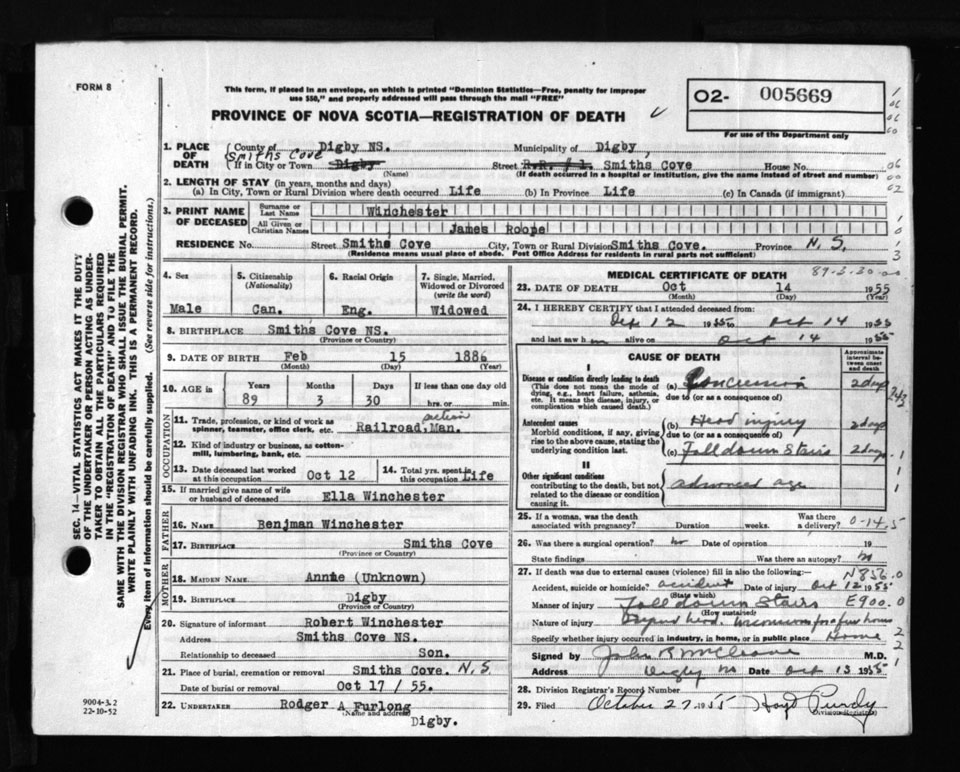 FORM 8
This form, if placed in an envelope, on which is printed "Dominion Statistics—Free, penalty for improper
use $50," and properly addressed will pass through the mail "FREE"
O2- 005669
For use of the Department only
PROVINCE OF NOVA SCOTIA—REGISTRATION OF DEATH
1. PLACE OF DEATH
County of Digby NS. Municipality of Digby,
Smiths Cove
If in City or Town Digby Street R.R. # 1. Smiths Cove House No.
(Name) (If death occurred in a hospital or institution, give the name instead of street and number)
2. LENGTH OF STAY (in years, months and days)
(a) In City, Town or Rural Division where death occurred Life (b) In Province Life (c) In Canada (if immigrant)
3. PRINT NAME OF DECEASED
Surname or Last Name Winchester
All Given or Christian Names James Roope
RESIDENCE No. Street Smiths Cove City, Town or Rural Division Smiths Cove. Province N. S.
(Residence means usual place of abode. Post Office Address for residents in rural parts not sufficient)
4. Sex
Male
5. Citizenship
(Nationality)
Can.
6. Racial Origin
Eng.
7. Single, Married,
Widowed or Divorced
(write the word)
Widowed
8. BIRTHPLACE Smiths Cove NS.
(Province or Country)
9. DATE OF BIRTH Feb 15 1886
(Month) (Day) (Year)
10. AGE in Years Months Days If less than one day old
89 3 30 hrs. or min.
OCCUPATION
11. Trade, profession, or kind of work as
spinner, teamster, office clerk, etc. Railroad section Man.
12. Kind of industry or business, as cotton-
mill, lumbering, bank, etc.
13. Date deceased last worked
at this occupation Oct 12
14. Total yrs. spent in
this occupation Life
15. If married give name of wife
or husband of deceased Ella Winchester
FATHER
16. NAME Benjman Winchester
17. BIRTHPLACE Smiths Cove
(Province or Country)
MOTHER
18. MAIDEN NAME Annie (Unknown)
19. BIRTHPLACE Digby
(Province or Country)
20. Signature of informant Robert Winchester
Address Smiths Cove NS.
Relationship to deceased Son.
21. Place of burial, cremation or removal Smiths Cove. N. S
Date of burial or removal Oct 17 / 55.
22. UNDERTAKER Rodger A Furlong
(Name and address)
Digby.
MEDICAL CERTIFICATE OF DEATH
23. DATE OF DEATH Oct 14 1955
(Month) (Day) (Year)
24. I HEREBY CERTIFY that I attended deceased from:
1955 to Oct 14 1955
and last saw him alive on Oct 14 1955
CAUSE OF DEATH
Approximate interval between onset and death
I
Disease or condition directly leading to death
(This does not mean the mode of
dying, e.g., heart failure, asthenia,
etc. It means the disease, injury, or
complication which caused death.)
(a) Concussion 2 days
due to (or as a consequence of)
Antecedent causes
Morbid conditions, if any, giving
rise to the above cause, stating the
underlying condition last.
(b) Head injury 2 days
due to (or as a consequence of)
(c) Fall down Stairs 2 days
II
Other significant conditions
contributing to the death, but not
related to the disease or condition
causing it.
advanced age
25. If a woman, was the death
associated with pregnancy? Duration weeks. Was there
a delivery? 0-14.5
26. Was there a surgical operation? no Date of operation 19
State findings Was there an autopsy? no
27. If death was due to external causes (violence) fill in also the following:— N856.0
Accident, suicide or homicide? accident Date of injury Oct 12 1955
(State which)
Manner of injury Fall down Stairs E900.0
(How sustained)
Nature of injury Injured head. Unconscious for a few hours
Specify whether injury occurred in industry, in home, or in public place Home
Signed by John R McCleave M.D.
Address Digby NS Oct 15 1955
28. Division Registrar's Record Number
29. Filed October 27 1955 Hoyt Purdy
Division Registrar
SEC. 14—VITAL STATISTICS ACT MAKES IT THE DUTY
OF THE UNDERTAKER OR PERSON ACTING AS UNDER-
TAKER TO OBTAIN ALL THE PARTICULARS REQUIRED
IN THE "REGISTRATION OF DEATH" AND TO FILE THE
SAME WITH THE DIVISION REGISTRAR WHO SHALL ISSUE THE BURIAL PERMIT.
WRITE PLAINLY WITH UNFADING INK. THIS IS A PERMANENT RECORD.
Every item of information should be carefully supplied. (See reverse side for instructions.)
9004-3.2
22-10-52